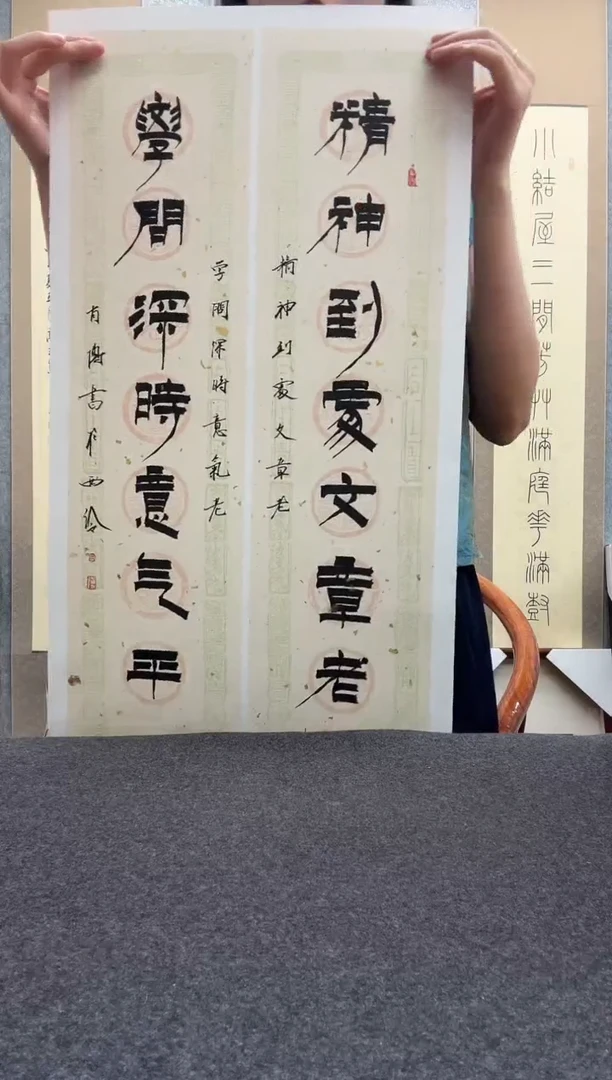 精神到處文章老
精神到處文章老
学問深時意氣老
學問深時意气平
書於西泠
小結屋三間芳艸滿庭華滿